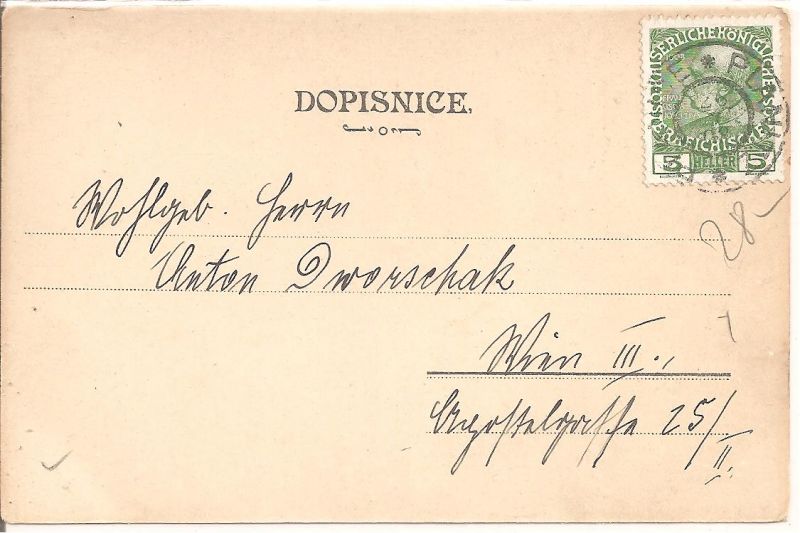 DOPISNICE.
KAISERLICHE KÖNIGLICHE
ÖSTERREICHISCHE
5 HELLER 5
28-
Wohlgeb. Herrn
Anton Dworschak
Wien III.,
Apostelgasse 25/II.